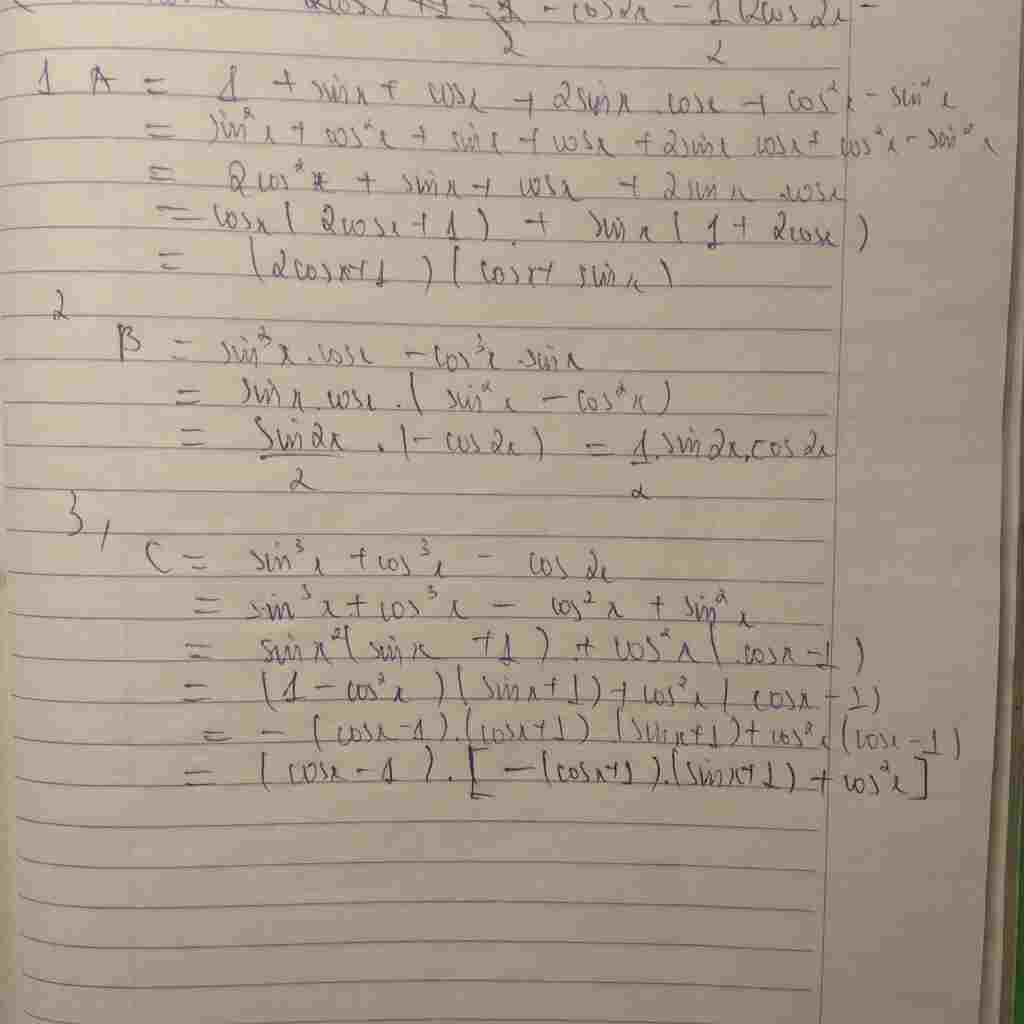 2cosx + 1 - 1/2 - cos2x - 1/2 (2cos2x -
1 A = 1 + sinx + cosx + 2sinx.cosx + cos²x - sin²x
= sin²x + cos²x + sinx + cosx + 2sinx cosx + cos²x - sin²x
= 2cos²x + sinx + cosx + 2sinx cosx
= cosx(2cosx + 1) + sinx(1 + 2cosx)
= (2cosx+1)(cosx + sinx)
2
B = sin³x.cosx - cos³x.sinx
= sinx.cosx.(sin²x - cos²x)
= sin2x/2 .(-cos2x) = 1/2.sin2x.cos2x
3,
C = sin³x + cos³x - cos2x
= sin³x + cos³x - cos²x + sin²x
= sinx²(sinx + 1) + cos²x(cosx - 1)
= (1 - cos²x)(sinx + 1) + cos²x(cosx - 1)
= -(cosx - 1).(cosx+1)(sinx+1) + cos²x(cosx - 1)
= (cosx - 1).[-(cosx+1).(sinx+1) + cos²x]